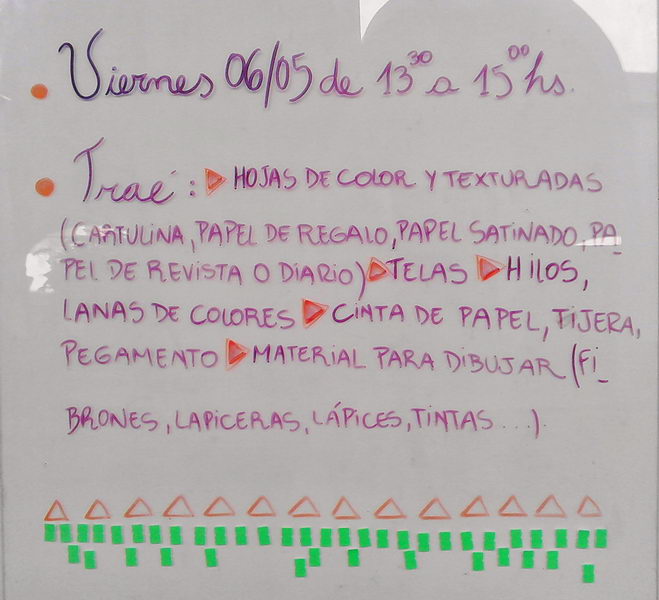 • Viernes 06/05 de 13³⁰ a 15⁰⁰ hs.
• Traé: ▶ HOJAS DE COLOR Y TEXTURADAS
(CARTULINA, PAPEL DE REGALO, PAPEL SATINADO, PA_
PEL DE REVISTA O DIARIO) ▶ TELAS ▶ HILOS,
LANAS DE COLORES ▶ CINTA DE PAPEL, TIJERA,
PEGAMENTO ▶ MATERIAL PARA DIBUJAR (FI_
BRONES, LAPICERAS, LÁPICES, TINTAS...).